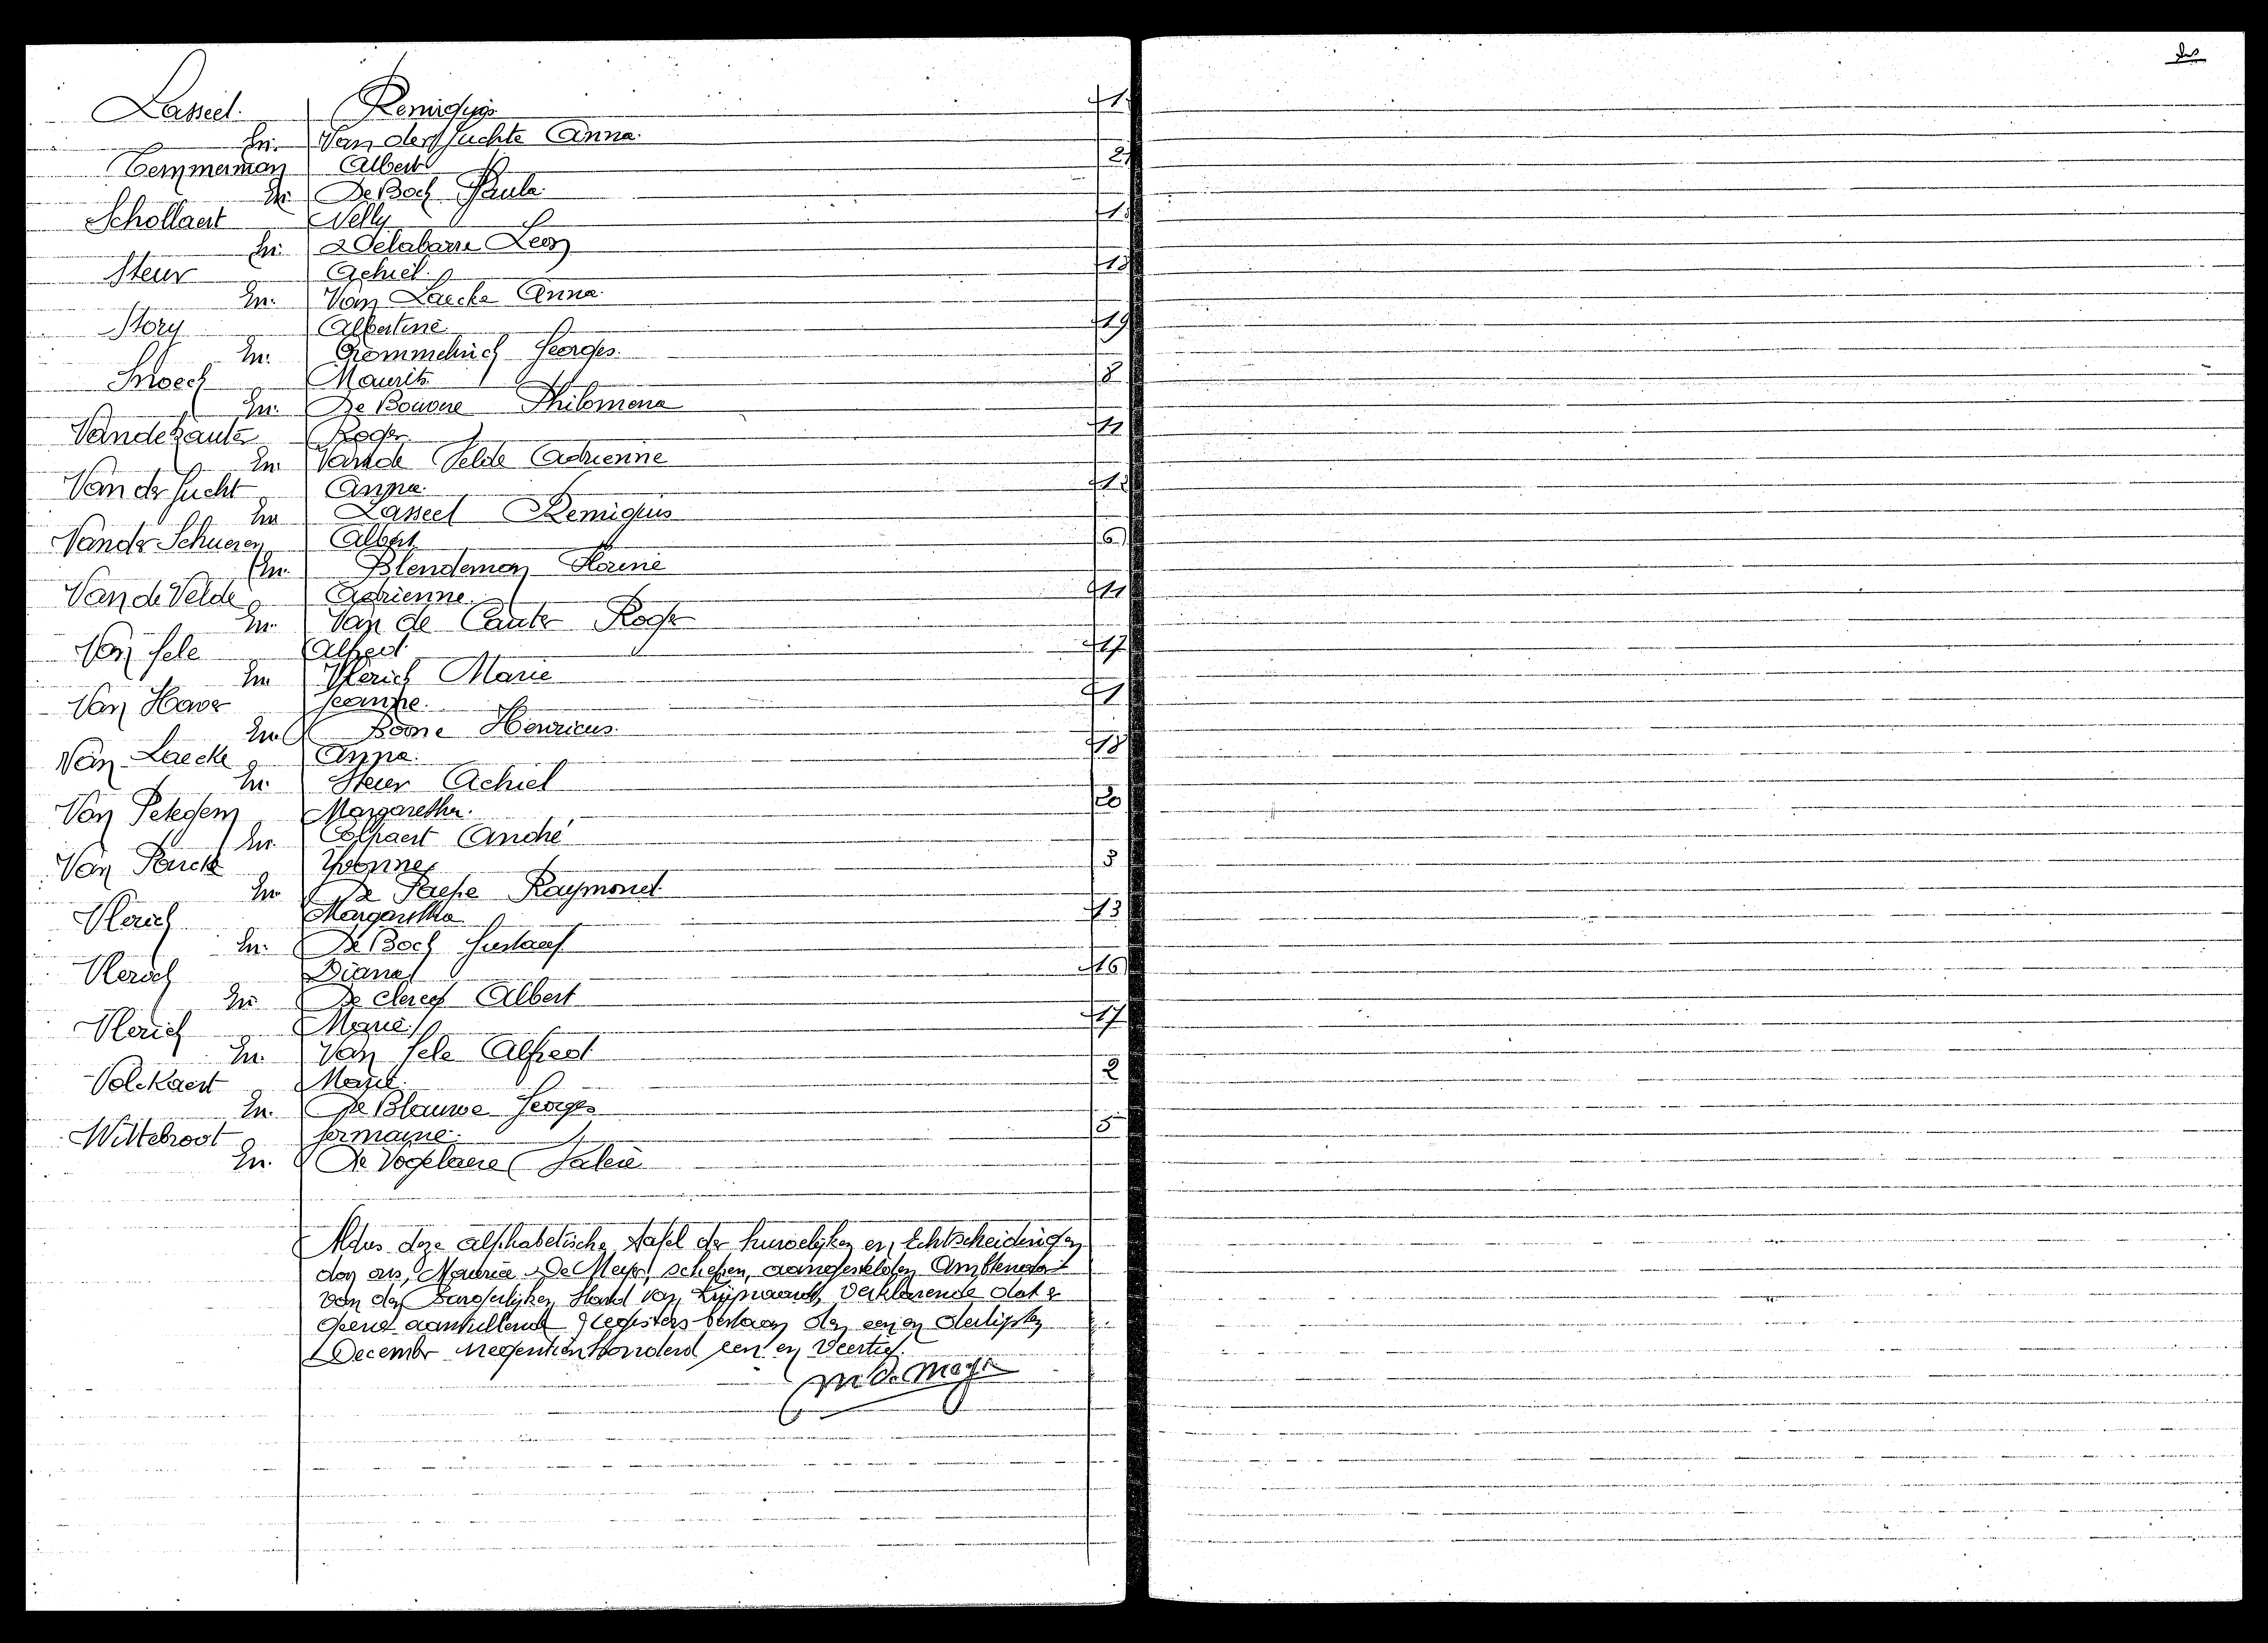 Lasseel. Remigius 1
En. Van der Juchte Anna.
Temmerman Albert 21
En. De Bock Paula
Schollaert Nelly
En. Delabarre Leon
Steur Achiel. 18
En. Van Laecke Anna.
Story Albertine 19
En. Georges.
Snoeck Maurits 8
En. De Bouvre Philomena
Vandekauter Roger 11
En Van de Velde Adrienne
Van der Jucht Anna.
En Lasseel Remigius
Vander Schueren Albert 6
En. Blendeman Florine
Van de Velde Adrienne. 11
En. Van de Cauter Roger
Van Jele Alfred. 17
En Vlerick Marie
Van Haver Jeanne. 1
En Boone Henricus.
Van Laecke Anna. 18
En. Steur Achiel
Van Petegem Margaretha. 20
En. Colpaert André
Van Yvonne 3
En De Paepe Raymond
Vlerick Margaretha 13
En. De Bock Gustaaf
Vlerick Diana 16
En De Clercq Albert
Vlerick Marie 17
En. Van Jele Alfred
Volckaert Marie 2
En. De Blauwe Georges
Wittebroot Germaine. 5
En. De Vogelaere
Aldus deze alphabetische tafel der huwelijken en Echtscheidingen
door ons, Maurice De Meyer, schepen, aangestelden Ambtenaar
van den Burgerlijken Stand van verklarende dat er
geene aanvullende registers bestaan den een en dertigsten
December negentienhonderd een en veertig.
M De Meyer